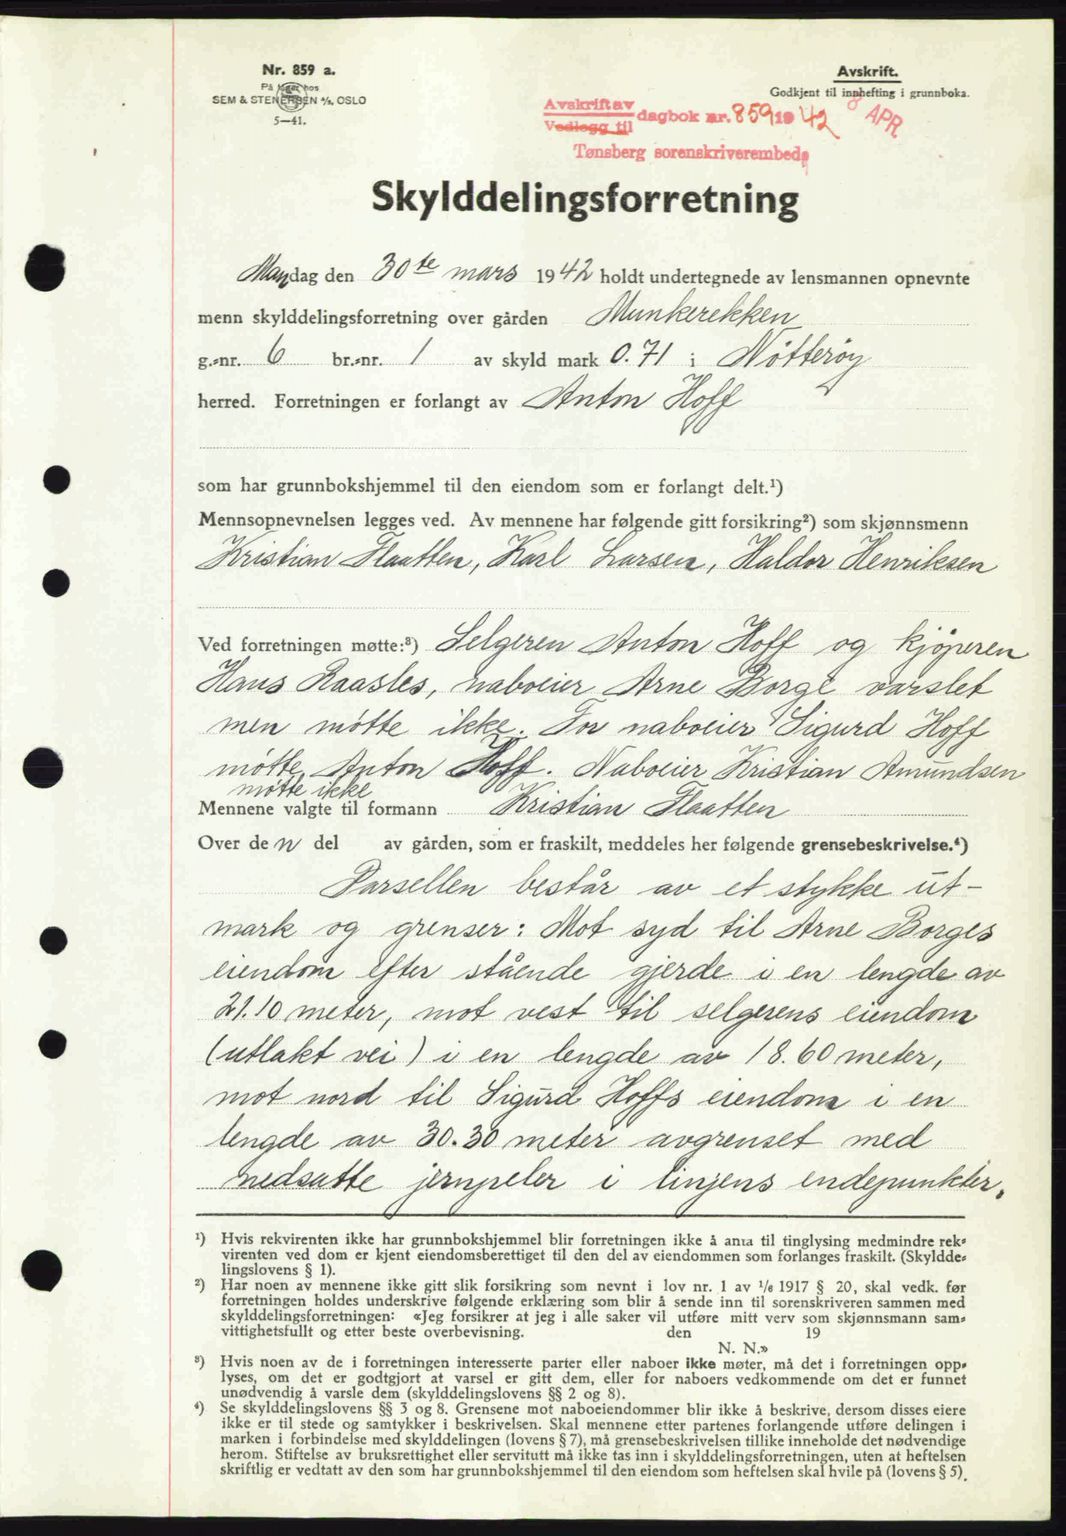 Nr. 859 a.
På lager hos
SEM & STENERSEN A/S, OSLO
5—41.
Avskrift.
Godkjent til innhefting i grunnboka.
Avskrift av
Vedlegg til
dagbok nr. 859 19 42
8 APR
Tønsberg sorenskriverembede
Skylddelingsforretning
Mandag den 30te mars 1942 holdt undertegnede av lensmannen opnevnte
menn skylddelingsforretning over gården Munkerekken
g.-nr. 6 br.-nr. 1 av skyld mark 0.71 i Nøtterøy
herred. Forretningen er forlangt av Anton Hoff
som har grunnbokshjemmel til den eiendom som er forlangt delt.¹)
Mennsopnevnelsen legges ved. Av mennene har følgende gitt forsikring²) som skjønnsmenn
Kristian Flaatten, Karl Larsen, Haldor Henriksen
Ved forretningen møtte:³) Selgeren Anton Hoff og kjøperen
Hans Raastes, naboeier Arne Borge varslet
men møtte ikke. For naboeier Sigurd Hoff
møtte Anton Hoff. Naboeier Kristian Amundsen
møtte ikke
Mennene valgte til formann Kristian Flaatten
Over de n del av gården, som er fraskilt, meddeles her følgende grensebeskrivelse.⁴)
Parsellen består av et stykke ut-
mark og grenser: Mot syd til Arne Borges
eiendom efter stående gjerde i en lengde av
21.10 meter, mot vest til selgerens eiendom
(utlakt vei) i en lengde av 18.60 meter,
mot nord til Sigurd Hoffs eiendom i en
lengde av 30.30 meter avgrenset med
nedsatte jernpeler i linjens endepunkter.
¹) Hvis rekvirenten ikke har grunnbokshjemmel blir forretningen ikke å anta til tinglysing medmindre rek-
virenten ved dom er kjent eiendomsberettiget til den del av eiendommen som forlanges fraskilt. (Skyldde-
lingslovens § 1).
²) Har noen av mennene ikke gitt slik forsikring som nevnt i lov nr. 1 av ¹/₆ 1917 § 20, skal vedk. før
forretningen holdes underskrive følgende erklæring som blir å sende inn til sorenskriveren sammen med
skylddelingsforretningen: «Jeg forsikrer at jeg i alle saker vil utføre mitt verv som skjønnsmann sam-
vittighetsfullt og etter beste overbevisning. den 19
N. N.»
³) Hvis noen av de i forretningen interesserte parter eller naboer ikke møter, må det i forretningen opp-
lyses, om det er godtgjort at varsel er gitt dem, eller for naboers vedkommende om det er funnet
unødvendig å varsle dem (skylddelingslovens §§ 2 og 8).
⁴) Se skylddelingslovens §§ 3 og 8. Grensene mot naboeiendommer blir ikke å beskrive, dersom disses eiere
ikke er til stede og samtykker i beskrivelsen. Skal mennene etter partenes forlangende utføre delingen i
marken i forbindelse med skylddelingen (lovens § 7), må grensebeskrivelsen tillike inneholde det nødvendige
herom. Stiftelse av bruksrettighet eller servitutt må ikke tas inn i skylddelingsforretningen, uten at heftelsen
skriftlig er vedtatt av den som har grunnbokshjemmel til den eiendom som heftelsen skal hvile på (lovens § 5).